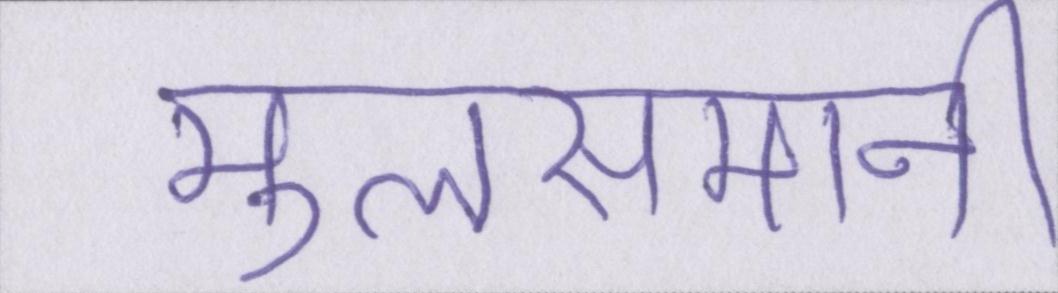 मुलसमानी